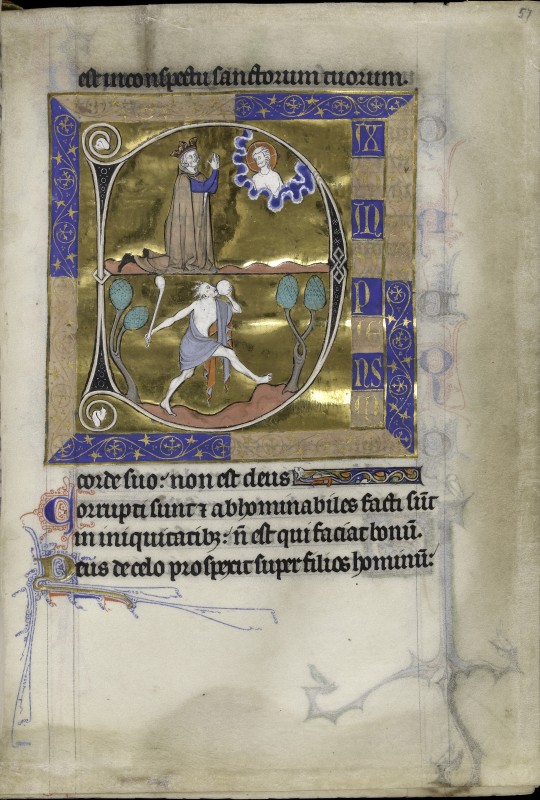 57
est in conspectu sanctorum tuorum.
D IX
IN
P
NS
corde suo: non est deus
Corrupti sunt ⁊ abhominabiles facti sūt
in iniquitatibꝫ: ñ est qui faciat bonū.
Deus de celo prospexit super filios hominū: